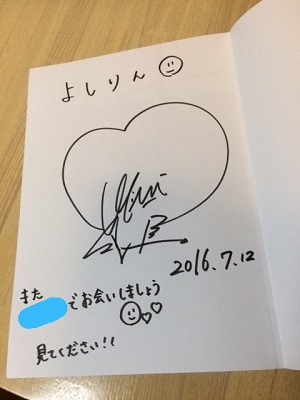 よしりん
2016.7.12
また
でお会いしましょう
見てください!!